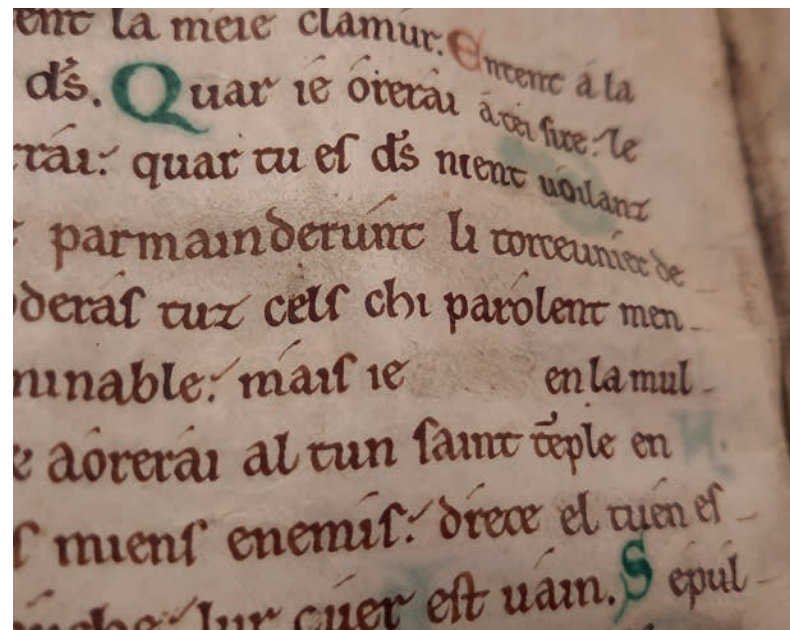 ent la meie clamur. Entent á la
d̄s. Quar ié óreraı á téı sire. le
raı. quar tu es d̄s nıent uoılanz
parmaınderunt li torceunıer de
deras tuz cels chı parólent men
mınable. mais ıe en la mul
e aórerai al tun saınt tēple en
s mıens enemis. drece el tuen es
buche. lur cuer est uaın. Sepul